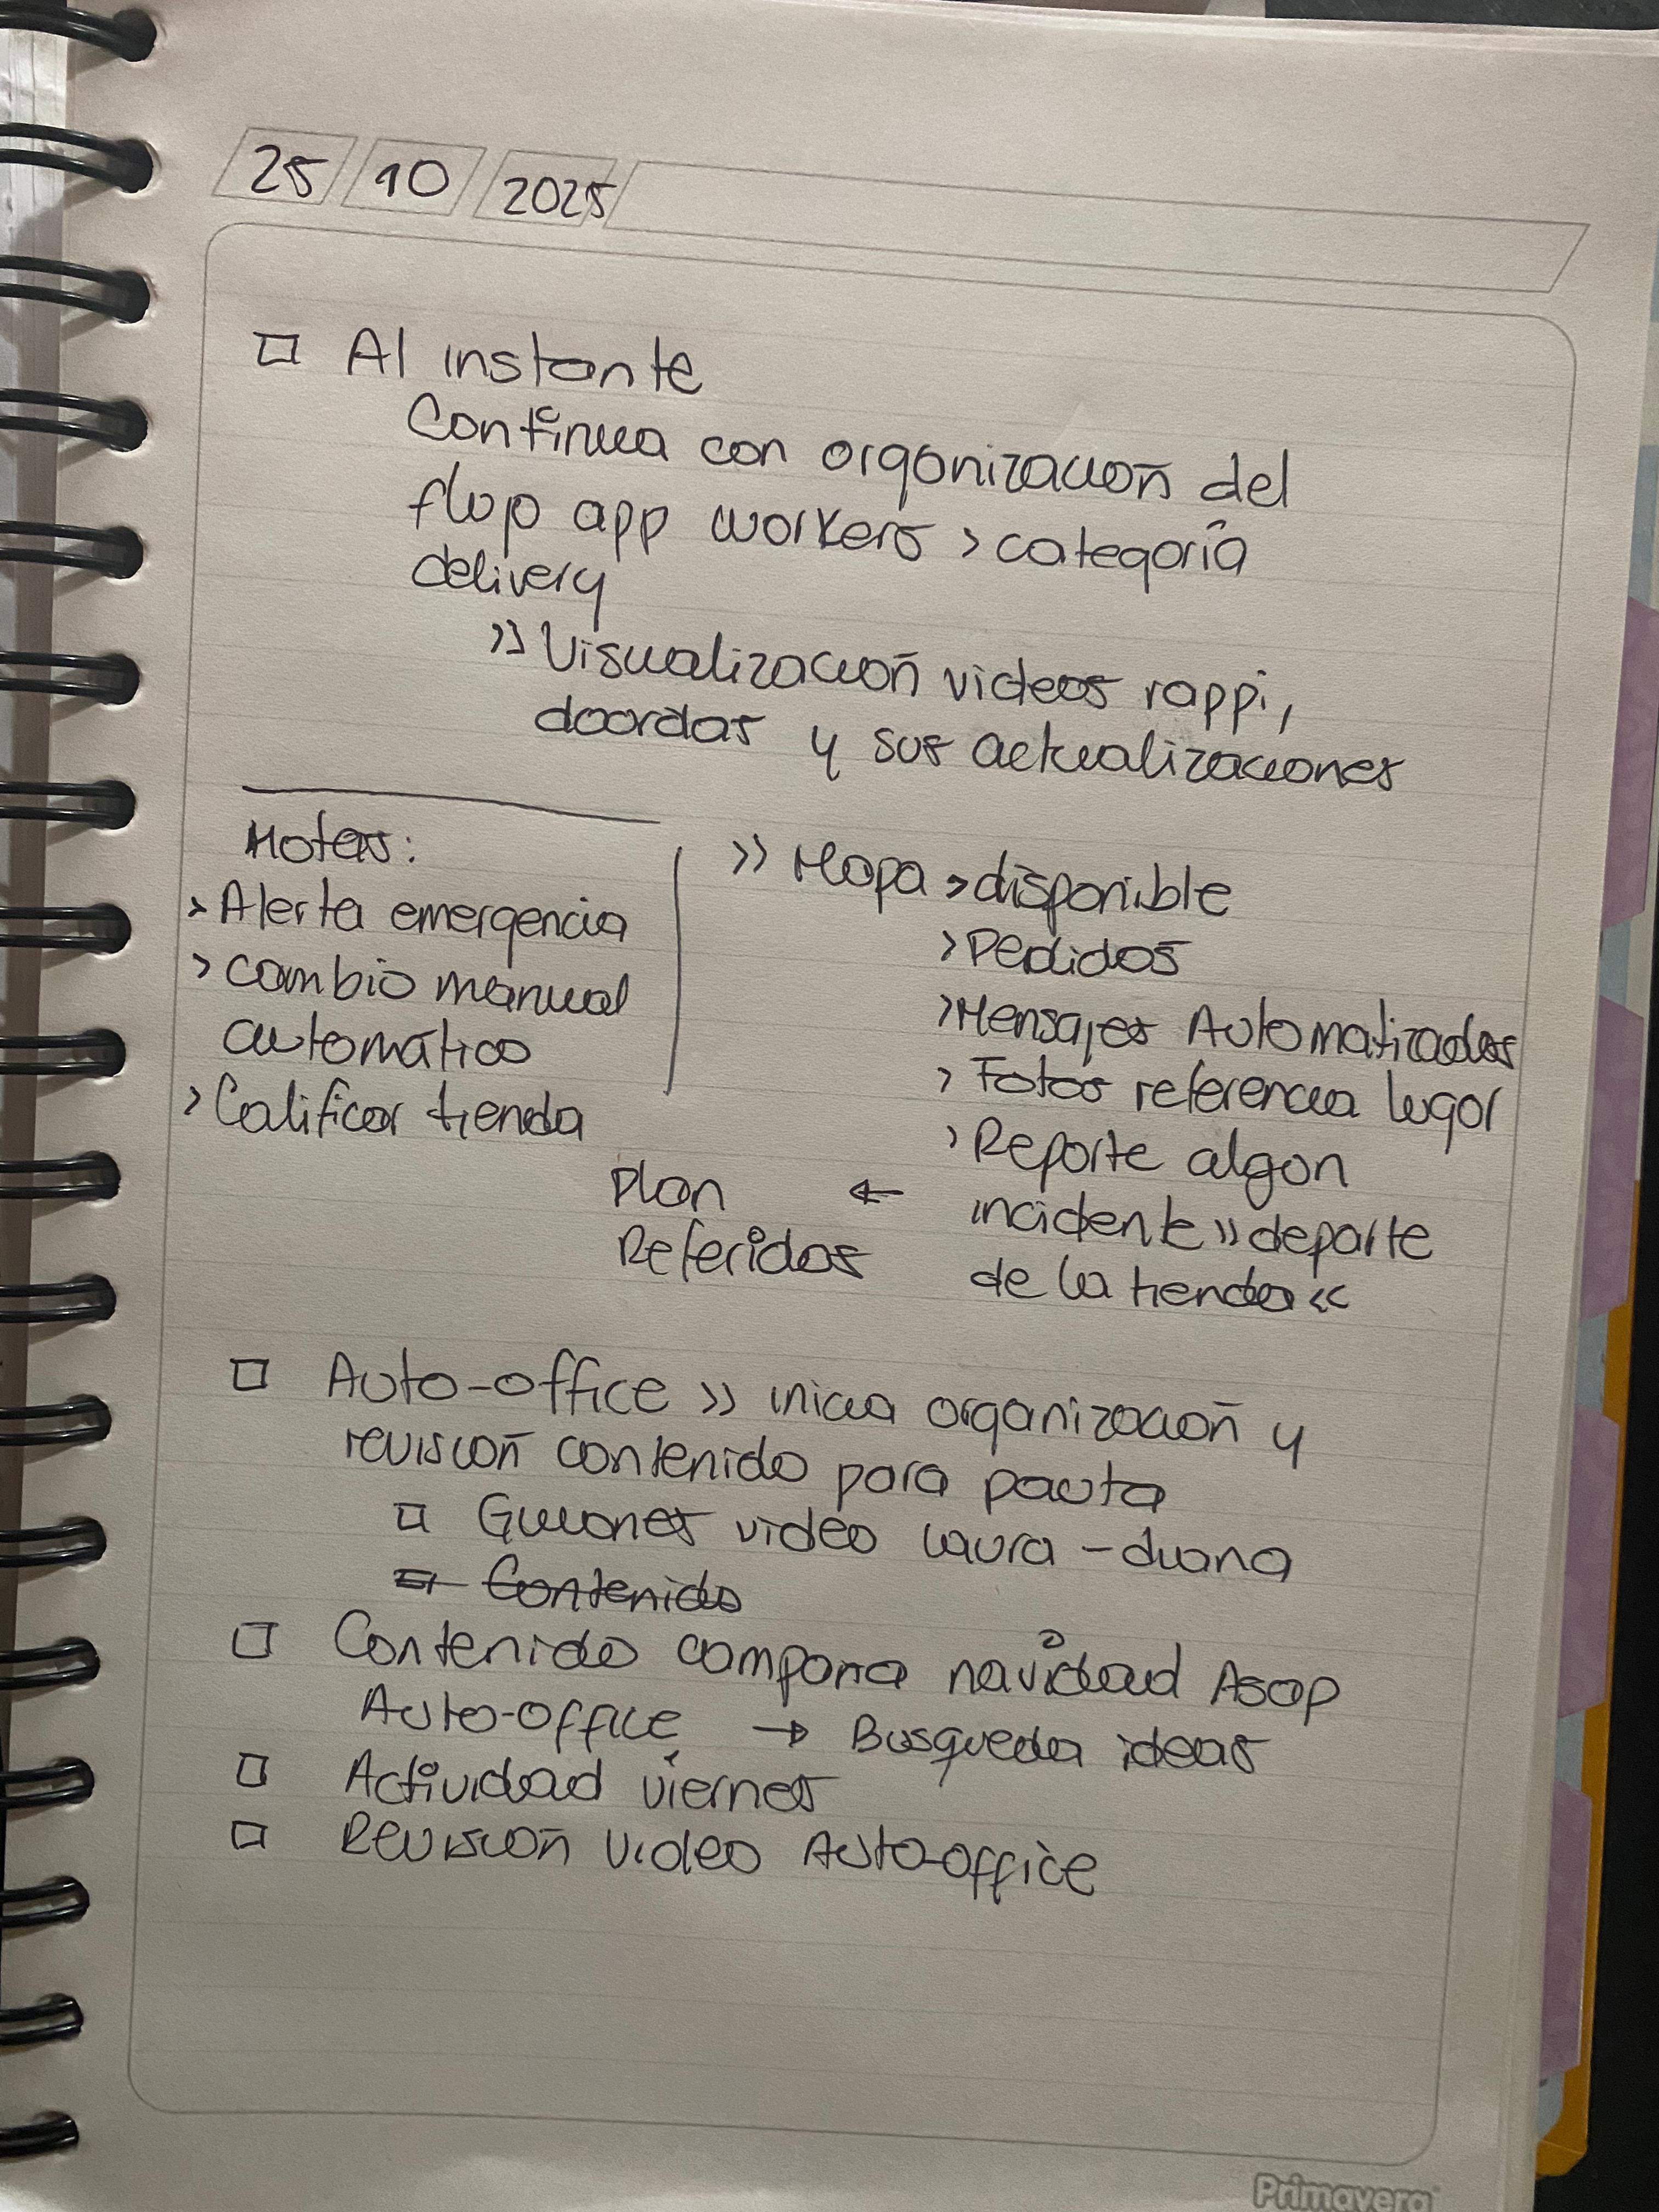 25 10 2025
□ Al instante
Continua con organización del
flujo app workers > categoría
delivery
>> Visualización videos rappi,
doordas y sus actualizaciones
Notas:
> Alerta emergencia
> cambio manual
automático
> Calificar tienda
>> Mapa > disponible
> Pedidos
> Mensajes Automatizados
> Fotos referencia lugar
> Reporte algun
incidente >> departe
de la tienda <<
Plan ←
Referidos
□ Auto-office >> inicia organización y
revisión contenido para pauta
□ Guiones video laura - diana
□ Contenido
□ Contenido campana navidad Asap
Auto-office → Busqueda ideas
□ Actividad viernes
□ Revisión video Auto-office
Primavera